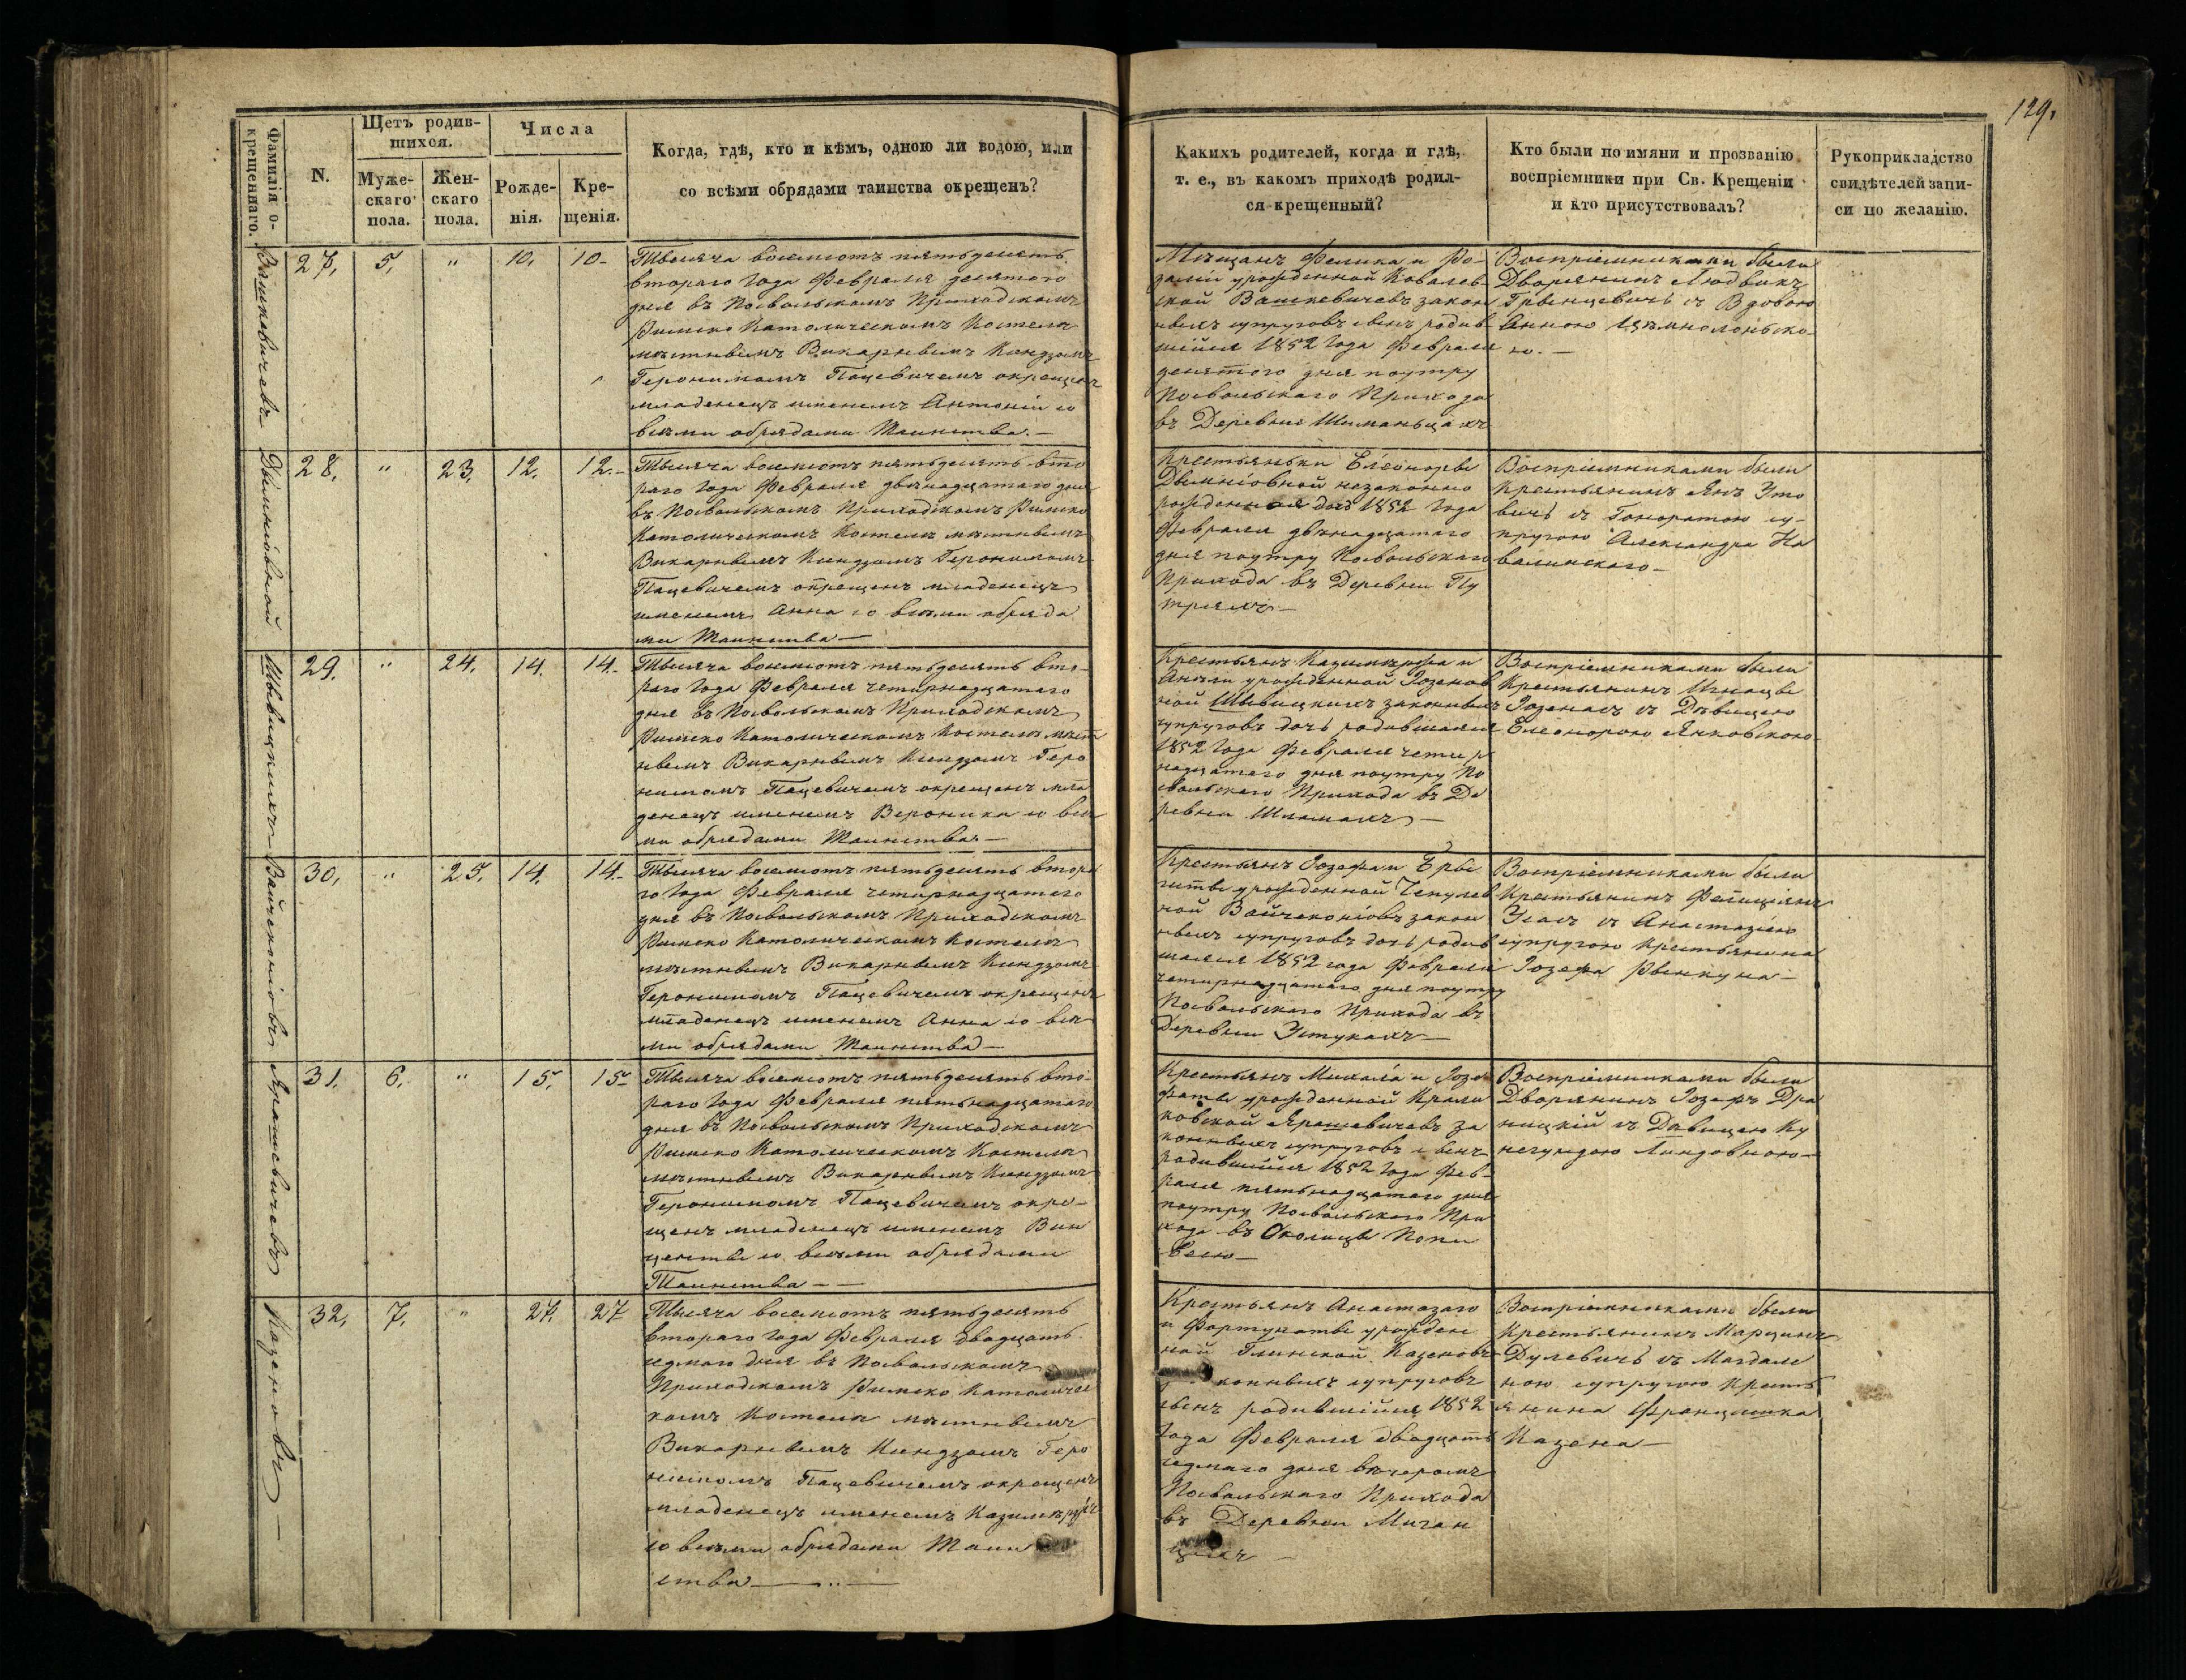 129.
Фамилія о-
крещеннаго.
N.
Щетъ родив-
шихся.
Муже-
скаго
пола.
Жен-
скаго
пола.
Числа
Рожде-
нія.
Кре-
щенія.
Когда, гдѣ, кто и кѣмъ, одною ли водою, или
со всѣми обрядами таинства окрещенъ?
Какихъ родителей, когда и гдѣ,
т. е., въ какомъ приходѣ родил-
ся крещенный?
Кто были по имяни и прозванію
воспріемники при Св. Крещеніи
и кто присутствовалъ?
Рукоприкладство
свидѣтелей запи-
си по желанію.
Вашкевичевъ
27.
5.
"
10.
10-
Тысяча восемсотъ пятьдесятъ
втораго года Февраля десятого
дня въ Посвольскомъ Приходскомъ
Римско Католическомъ Костелѣ
мѣстнымъ Викарнымъ Ксендзомъ
Геронимомъ Пацевичемъ окрещенъ
младенецъ именемъ Антоній со
всѣми обрядами Таинства.—
Мѣщанъ Феликса и Ро-
заліи урожденной Ковалев-
ской Вашкевичевъ закон
ныхъ супруговъ сынъ родив-
шійся 1852 года Февраля
десятого дня поутру
Посвольскаго Прихода
въ Деревнѣ Шиманьцахъ
Воспріемниками были
Дворянинъ Людвикъ
Грынцевичъ съ Вдовою
Анною
ю.—
28.
"
23.
12.
12.-
Тысяча восемсотъ пятьдесятъ вто
раго года Февраля двѣнадцатаго дня
въ Посвольскомъ Приходскомъ Римско
Католическомъ Костелѣ мѣстнымъ
Викарнымъ Ксендзомъ Геронимомъ
Пацевичемъ окрещенъ младенецъ
именемъ Анна со всѣми обряда
ми Таинства—
Крестьянки Елеоноры
незаконно
рожденная дочь 1852 года
Февраля двѣнадцатаго
дня поутру Посвольскаго
Прихода въ Деревни Пу
тряхъ.—
Воспріемниками были
Крестьянинъ Янъ Уто
вичъ съ Гоноратою су-
пругою Александра Ко
валинскаго—
29.
"
24.
14.
14.-
Тысяча восемсотъ пятьдесятъ вто-
раго года Февраля четырнадцатаго
дня въ Посвольскомъ Приходскомъ
Римско Католическомъ Костелѣ мѣст
нымъ Викарнымъ Ксендзомъ Геро
нимомъ Пацевичемъ окрещенъ мла
денецъ именемъ Вероника со всѣ
ми обрядами Таинства—
Крестьянъ Казимѣра и
Анѣли урожденной Юзенов
ной законныхъ
супруговъ дочь родившаяся
1852 года Февраля четыр
надцатаго дня поутру По
свольскаго Прихода въ Де
ревни—
Воспріемниками были
Крестьянинъ Игнацы
Юзенасъ съ Дѣвицею
Елеонорою Янковскою
30.
"
25.
14.
14.-
Тысяча восемсотъ пятьдесятъ втора
го года Февраля четырнадцатаго
дня въ Посвольскомъ Приходскомъ
Римско Католическомъ Костелѣ
мѣстнымъ Викарнымъ Ксендзомъ
Геронимомъ Пацевичемъ окрещенъ
младенецъ именемъ Анна со всѣ
ми обрядами Таинства—
Крестьянъ Юзефа и Бры
гиты урожденной Чепулев
ной Вайчеконіовъ закон
ныхъ супруговъ дочь родив
шаяся 1852 года Февраля
четырнадцатаго дня поутру
Посвольскаго Прихода въ
Деревни Устукахъ—
Воспріемниками были
Крестьянинъ Фелиціянъ
съ Анастазіею
супругою Крестьянина
Юзефа Рынкуна—
Вайчеконіовъ
31.
6.
"
15.
15-
Тысяча восемсотъ пятьдесятъ вто-
раго года Февраля пятьнадцатаго
дня въ Посвольскомъ Приходскомъ
Римско Католическомъ Костелѣ
мѣстнымъ Викарнымъ Ксендзомъ
Геронимомъ Пацевичемъ окре-
щенъ младенецъ именемъ Вин
центы со всѣми обрядами
Таинства——
Крестьянъ Михала и Юзе
фаты урожденной Крали
ковской Ярашевичевъ за
конныхъ супруговъ сынъ
родившійся 1852 года Фев-
раля пятьнадцатаго дня
поутру Посвольскаго При
хода въ Околицы Попи
весю—
Воспріемниками были
Дворянинъ Юзефъ Дра
ницкій съ Дѣвицею Ку
негундою Линдовною—
Ярашевичевъ
32.
7.
"
27.
27
Тысяча восемсотъ пятьдесятъ
втораго года Февраля двадцать
седмаго дня въ Посвольскомъ
Приходскомъ Римско Католичес
комъ Костелѣ мѣстнымъ
Викарнымъ Ксендзомъ Геро
нимомъ Пацевичемъ окрещенъ
младенецъ именемъ Казимѣръ
со всѣми обрядами Таин
ства—..—
Крестьянъ Анастазаго
и Фортунаты урожден
ной Глинской Казеновъ
конныхъ супруговъ
сынъ родившійся 1852
года Февраля двадцать
седмаго дня вѣчеромъ
Посвольскаго Прихода
въ Деревни Миган
цяхъ—
Воспріемниками были
Крестьянинъ Марцинъ
Дулевичъ съ Магдале
ною супругою Кресть
янина Францишка
Казена—
Казеновъ—